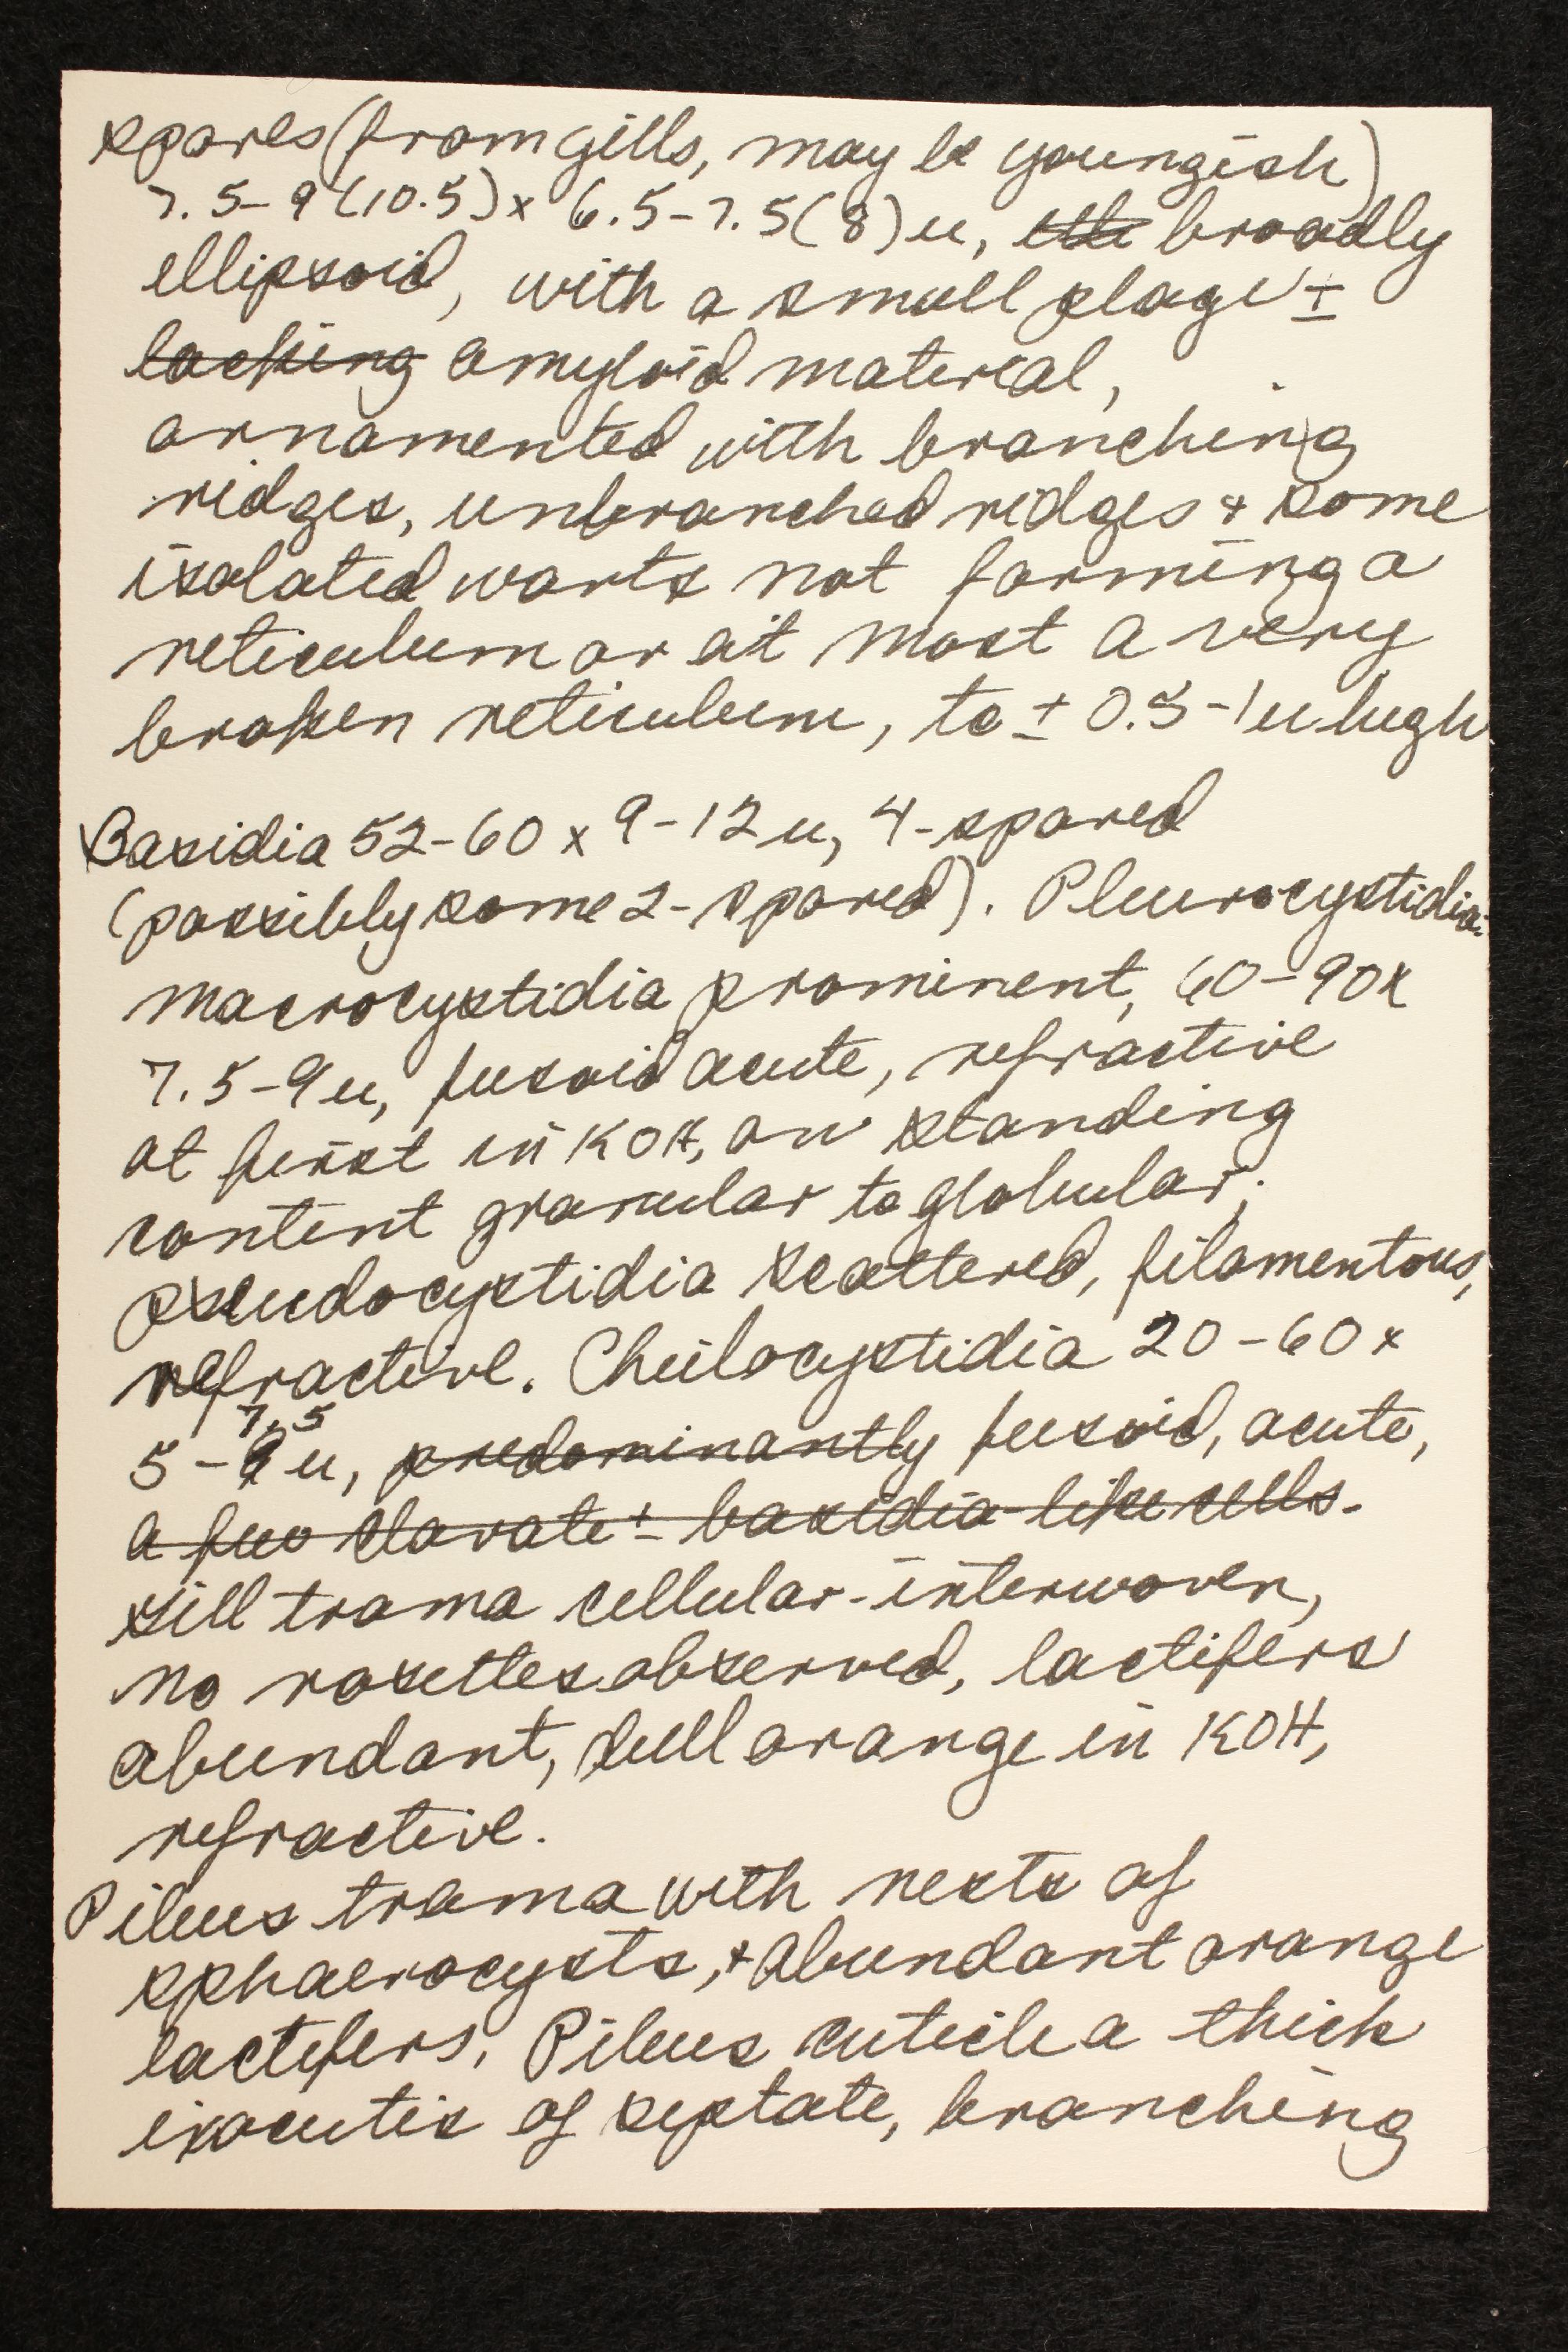 spores (from gills, may be youngish)
7.5-9(10.5) x 6.5-7.5(8)u, broadly
ellipsoid, with a small plage ±
lacking amyloid material,
ornamented with branching
ridges, unbranched ridges + some
isolated warts not forming a
reticulum or at most a very
broken reticulum, to ± 0.5-1u high
Basidia 52-60 x 9-12u, 4-spored
(possibly some 2-spored). Pleurocystidia:
macrocystidia prominent, 60-90x
7.5-9u, fusoid acute, refractive
at first in KOH, on standing
content granular to globular;
pseudocystidia scattered, filamentous,
refractive. Cheilocystidia 20-60x
7.5
5-9u, predominantly fusoid, acute,
a few clavate ± basidia-like cells.
Gill trama cellular-interwoven,
no rosettes observed, lactifers
abundant, dull orange in KOH,
refractive.
Pileus trama with nests of
sphaerocysts, + abundant orange
lactifers. Pileus cuticle a thick
ixocutis of septate, branching